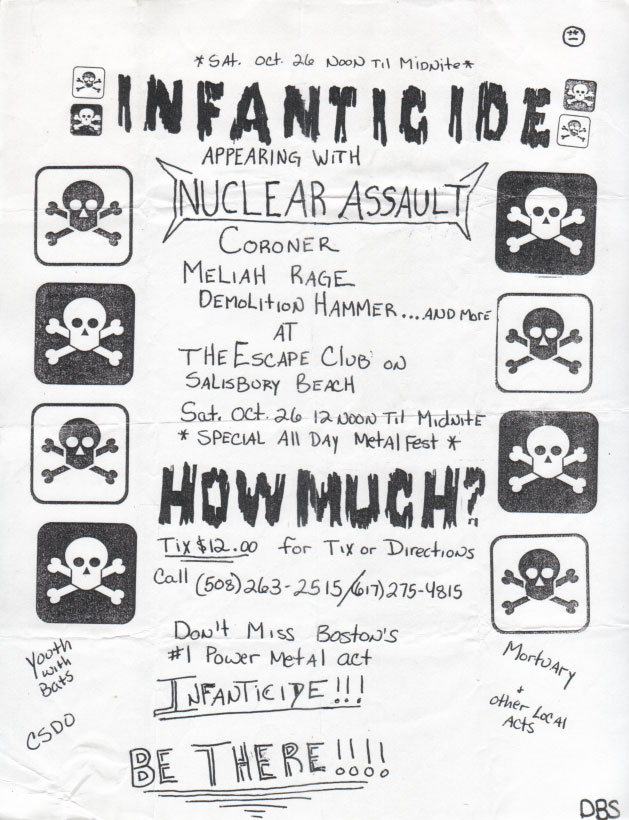 *SAT. Oct. 26 NOON Til MiDNite*
INFANTICIDE
APPEARING WITH
NUCLEAR ASSAULT
CORONER
MELIAH RAGE
DEMOLITION HAMMER...AND More
AT
THE ESCAPE CLUB ON
SALISBURY BEACH
Sat. Oct. 26 12 NOON Til MiDNITE
* SPECIAL All DAY Metal Fest *
HOW MUCH?
Tix $12.00 for Tix or Directions
Call (508)263-2515/(617)275-4815
Don't Miss Boston's
#1 Power Metal act
INFANTICIDE!!!
Youth
with
Bats
CSDO
Mortuary
+
other Local
Acts
BE THERE!!!!
DBS